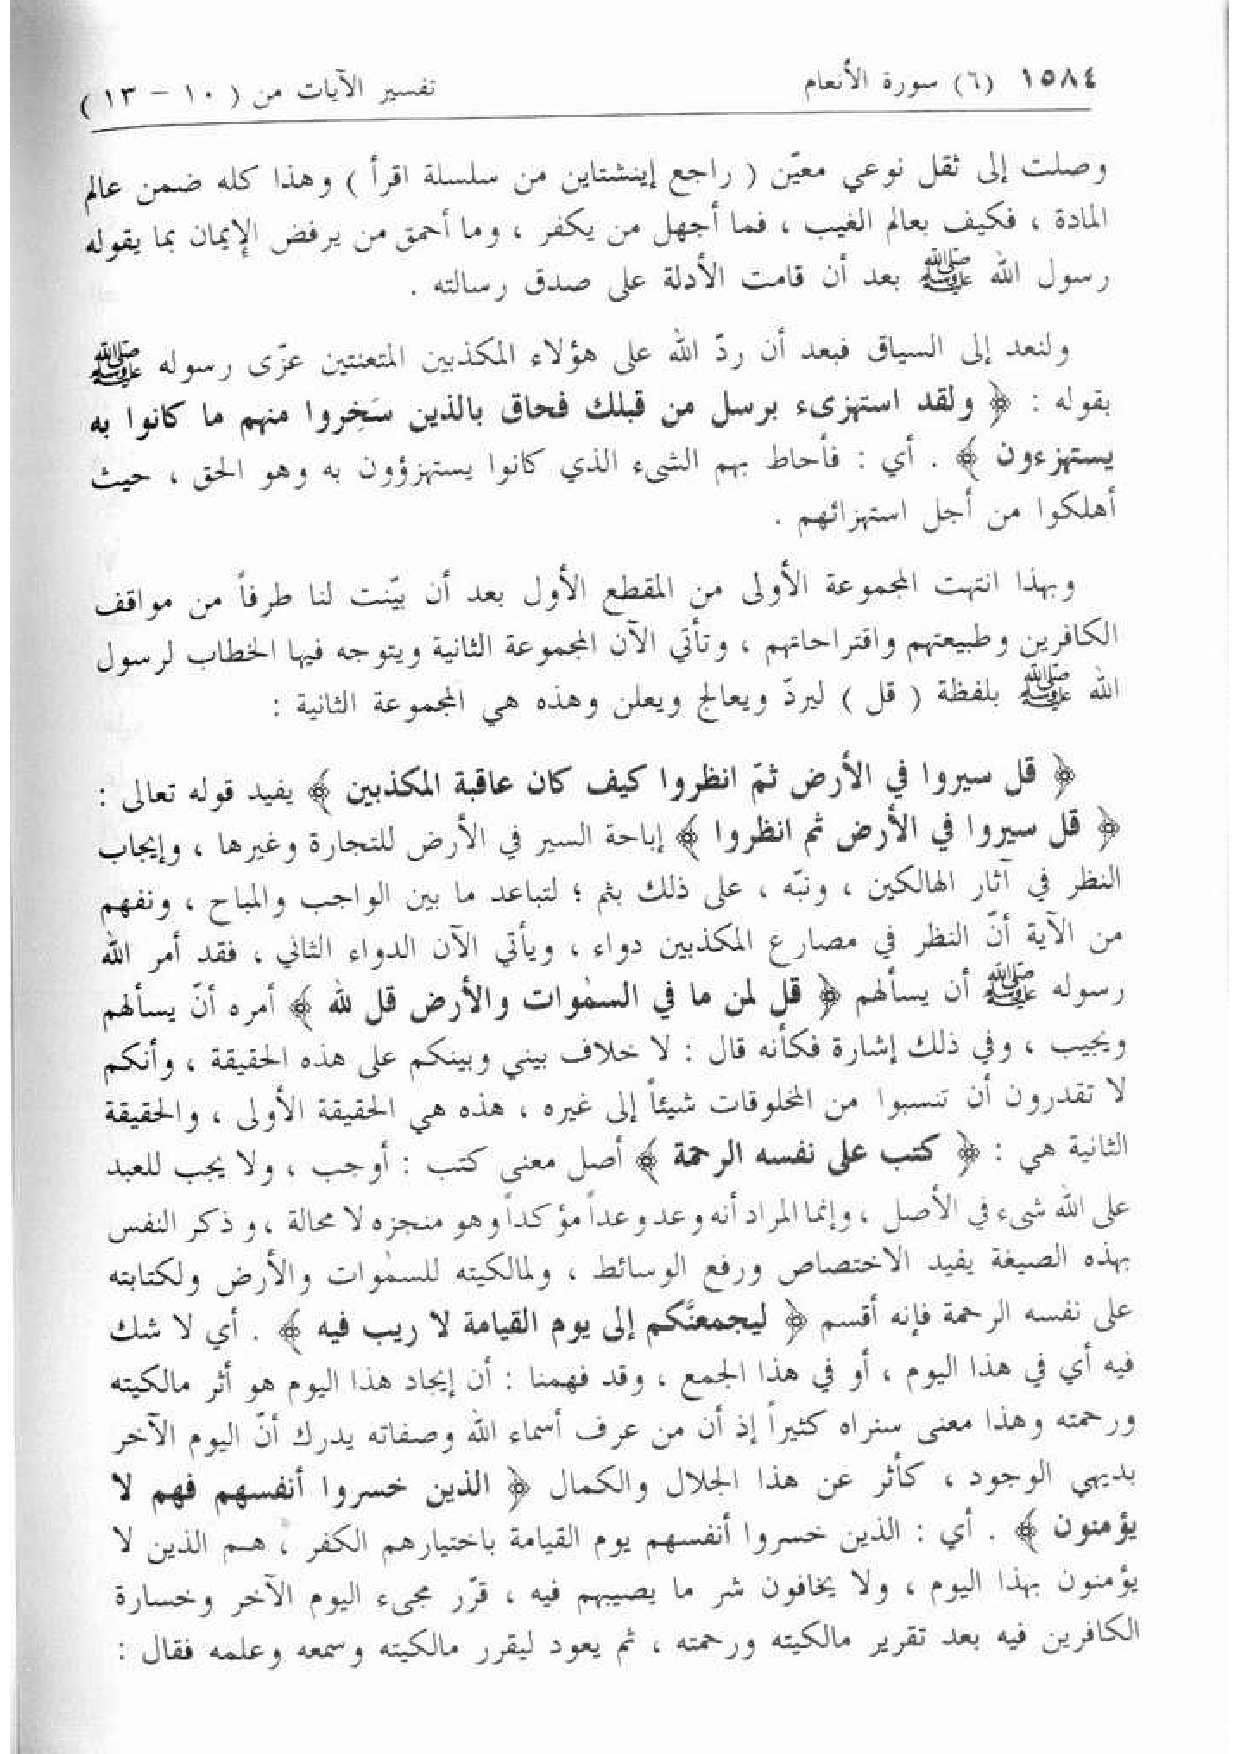 ١٥٨٤ (٦) سورة الأنعام تفسير الآيات من ( ١٠ – ١٣ )
وصلت إلى ثقل نوعي معيّن ( راجع إينشتاين من سلسلة اقرأ ) وهذا كله ضمن عالم
المادة ، فكيف بعالم الغيب ، فما أجهل من يكفر ، وما أحمق من يرفض الإيمان بما يقوله
رسول الله ﷺ بعد أن قامت الأدلة على صدق رسالته .
ولنعد إلى السياق فبعد أن ردّ الله على هؤلاء المكذبين المتعنتين عزّى رسوله ﷺ
بقوله : ﴿ ولقد استهزىء برسل من قبلك فحاق بالذين سَخِروا منهم ما كانوا به
يستهزءون ﴾ . أي : فأحاط بهم الشىء الذي كانوا يستهزؤون به وهو الحق ، حيث
أهلكوا من أجل استهزائهم .
وبهذا انتهت المجموعة الأولى من المقطع الأول بعد أن بيّنت لنا طرفاً من مواقف
الكافرين وطبيعتهم واقتراحاتهم ، وتأتي الآن المجموعة الثانية ويتوجه فيها الخطاب لرسول
الله ﷺ بلفظة ( قل ) ليردّ ويعالج ويعلن وهذه هي المجموعة الثانية :
﴿ قل سيروا في الأرض ثمّ انظروا كيف كان عاقبة المكذبين ﴾ يفيد قوله تعالى :
﴿ قل سيروا في الأرض ثم انظروا ﴾ إباحة السير في الأرض للتجارة وغيرها ، وإيجاب
النظر في آثار الهالكين ، ونبّه ، على ذلك بثم ؛ لتباعد ما بين الواجب والمباح ، ونفهم
من الآية أنّ النظر في مصارع المكذبين دواء ، ويأتي الآن الدواء الثاني ، فقد أمر الله
رسوله ﷺ أن يسألهم ﴿ قل لمن ما في السمٰوات والأرض قل لله ﴾ أمره أنّ يسألهم
ويجيب ، وفي ذلك إشارة فكأنه قال : لا خلاف بيني وبينكم على هذه الحقيقة ، وأنكم
لا تقدرون أن تنسبوا من المخلوقات شيئاً إلى غيره ، هذه هي الحقيقة الأولى ، والحقيقة
الثانية هي : ﴿ كتب على نفسه الرحمة ﴾ أصل معنى كتب : أوجب ، ولا يجب للعبد
على الله شىء في الأصل ، وإنما المراد أنه وعد وعداً مؤكداً وهو منجزه لا محالة ، وذكر النفس
بهذه الصيغة يفيد الاختصاص ورفع الوسائط ، ولمالكيته للسمٰوات والأرض ولكتابته
على نفسه الرحمة فإنه أقسم ﴿ ليجمعنَّكم إلى يوم القيامة لا ريب فيه ﴾ . أي لا شك
فيه أي في هذا اليوم ، أو في هذا الجمع ، وقد فهمنا : أن إيجاد هذا اليوم هو أثر مالكيته
ورحمته وهذا معنى سنراه كثيراً إذ أن من عرف أسماء الله وصفاته يدرك أنّ اليوم الآخر
بديهي الوجود ، كأثر عن هذا الجلال والكمال ﴿ الذين خسروا أنفسهم فهم لا
يؤمنون ﴾ . أي : الذين خسروا أنفسهم يوم القيامة باختيارهم الكفر ، هم الذين لا
يؤمنون بهذا اليوم ، ولا يخافون شر ما يصيبهم فيه ، قرّر مجىء اليوم الآخر وخسارة
الكافرين فيه بعد تقرير مالكيته ورحمته ، ثم يعود ليقرر مالكيته وسمعه وعلمه فقال :